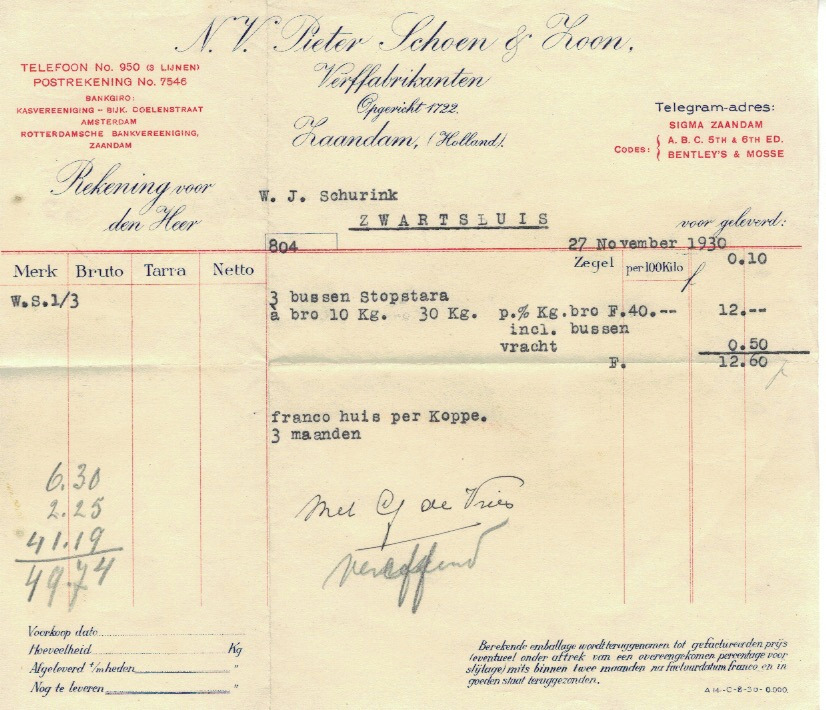 N.V. Pieter Schoen & Zoon,
Verffabrikanten
Opgericht 1722.
Zaandam, (Holland).
TELEFOON No. 950 (3 LIJNEN)
POSTREKENING No. 7546
BANKGIRO:
KASVEREENIGING - BIJK. DOELENSTRAAT
AMSTERDAM
ROTTERDAMSCHE BANKVEREENIGING,
ZAANDAM
Telegram-adres:
SIGMA ZAANDAM
CODES: { A. B. C. 5TH & 6TH ED.
BENTLEY'S & MOSSE
Rekening voor
den Heer
W. J. Schurink
ZWARTSLUIS
voor geleverd:
804
27 November 1930
Merk Bruto Tarra Netto
Zegel per 100 Kilo f 0.10
W.S.1/3
3 bussen Stopstara
à bro 10 Kg. 30 Kg. p.% Kg.bro F.40.-- 12.--
incl. bussen
vracht 0.50
F. 12.60
franco huis per Koppe.
3 maanden
6.30
2.25
41.19
49.74
Met Cy de Vries
vereffend
Voorkoop dato
Hoeveelheid Kg
Afgeleverd t/m heden "
Nog te leveren "
Berekende emballage wordt teruggenomen tot gefactureerden prijs
(eventueel onder aftrek van een overeengekomen percentage voor
slijtage) mits binnen twee maanden na factuurdatum franco en in
goeden staat teruggezonden.